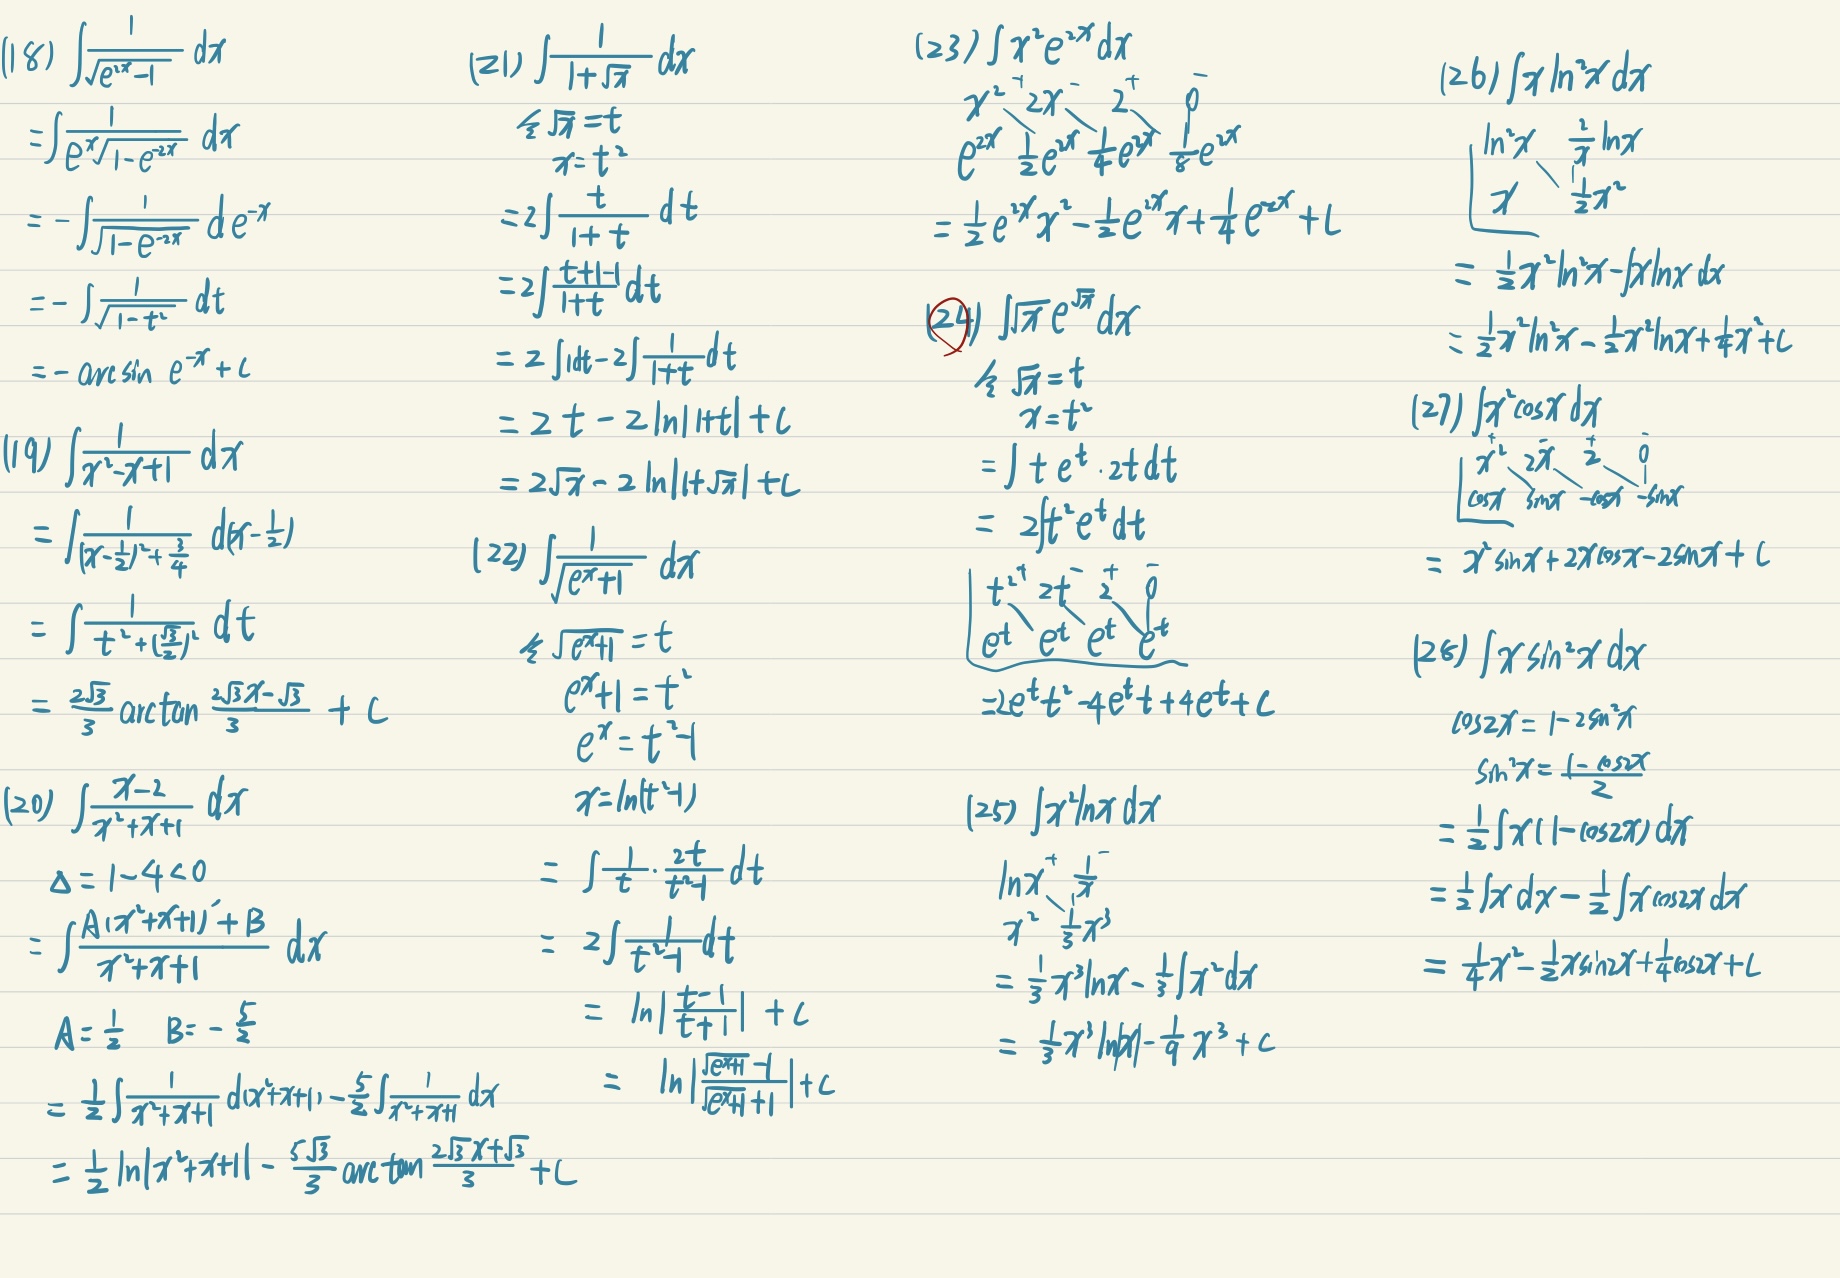 (18) ∫ 1/√(e^{2x}-1) dx
= ∫ 1/(e^x √(1-e^{-2x})) dx
= - ∫ 1/√(1-e^{-2x}) d e^{-x}
= - ∫ 1/√(1-t²) dt
= - arcsin e^{-x} + C
(19) ∫ 1/(x²-x+1) dx
= ∫ 1/((x-1/2)²+3/4) d(x-1/2)
= ∫ 1/(t²+(√3/2)²) dt
= 2√3/3 arctan (2√3x-√3)/3 + C
(20) ∫ (x-2)/(x²+x+1) dx
Δ = 1-4<0
= ∫ (A(x²+x+1)′+B)/(x²+x+1) dx
A = 1/2 B = - 5/2
= 1/2 ∫ 1/(x²+x+1) d(x²+x+1) - 5/2 ∫ 1/(x²+x+1) dx
= 1/2 ln|x²+x+1| - 5√3/3 arctan (2√3x+√3)/3 + C
(21) ∫ 1/(1+√x) dx
令 √x = t
x = t²
= 2∫ t/(1+t) dt
= 2∫ (t+1-1)/(1+t) dt
= 2 ∫1dt - 2∫ 1/(1+t) dt
= 2t - 2 ln|1+t| + C
= 2√x - 2 ln|1+√x| + C
(22) ∫ 1/√(e^x+1) dx
令 √(e^x+1) = t
e^x+1 = t²
e^x = t²-1
x = ln(t²-1)
= ∫ 1/t · 2t/(t²-1) dt
= 2∫ 1/(t²-1) dt
= ln|(t-1)/(t+1)| + C
= ln|(√(e^x+1)-1)/(√(e^x+1)+1)| + C
(23) ∫ x²e^{2x} dx
x² + 2x - 2 + 0 -
e^{2x} 1/2 e^{2x} 1/4 e^{2x} 1/8 e^{2x}
= 1/2 e^{2x} x² - 1/2 e^{2x} x + 1/4 e^{2x} + C
(24) ∫ √x e^{√x} dx
令 √x = t
x = t²
= ∫ t e^t · 2t dt
= 2∫ t² e^t dt
t² + 2t - 2 + 0 -
e^t e^t e^t e^t
= 2e^t t² - 4e^t t + 4e^t + C
(25) ∫ x² lnx dx
lnx + 1/x -
x² 1/3 x³
= 1/3 x³ lnx - 1/3 ∫ x² dx
= 1/3 x³ ln|x| - 1/9 x³ + C
(26) ∫ x ln²x dx
ln²x 2/x lnx
x 1/2 x²
= 1/2 x² ln²x - ∫ x lnx dx
= 1/2 x² ln²x - 1/2 x² lnx + 1/4 x² + C
(27) ∫ x² cosx dx
x² + 2x - 2 + 0 -
cosx sinx -cosx -sinx
= x² sinx + 2x cosx - 2sinx + C
(28) ∫ x sin²x dx
cos2x = 1-2sin²x
sin²x = (1-cos2x)/2
= 1/2 ∫ x(1-cos2x) dx
= 1/2 ∫ x dx - 1/2 ∫ x cos2x dx
= 1/4 x² - 1/2 x sin2x + 1/4 cos2x + C